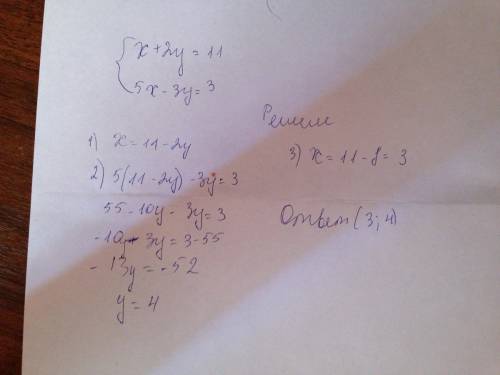 x + 2y = 11
5x - 3y = 3
Решим
1) x = 11 - 2y
2) 5(11 - 2y) - 3y = 3
55 - 10y - 3y = 3
- 10y - 3y = 3 - 55
- 13y = - 52
y = 4
3) x = 11 - 8 = 3
Ответ (3; 4)